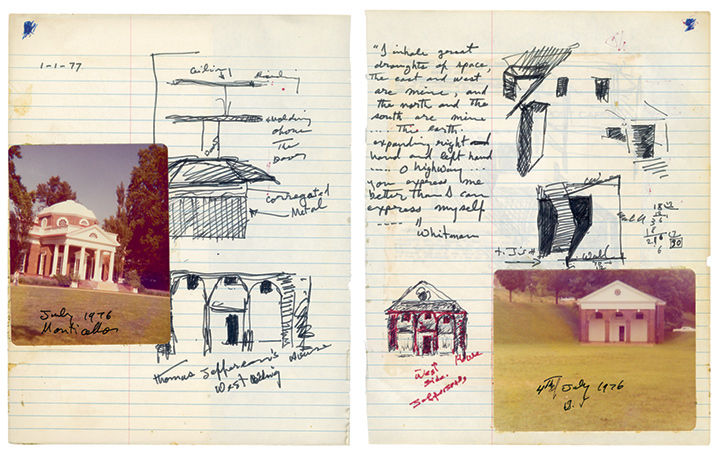 1-1-77
Ceiling
molding
above
The
Door
corregated
Metal
July 1976
Monticello
Thomas Jefferson's House
West
"I inhale great
draughts of space,
the east and west
are mine, and
the north and the
south are mine
.... The earth
expanding right
hand and left hand
..... O highway ....
you express me
better than I can
express myself
..... "
Whitman
Wall
18
West House
Side.
Jeffersons
4th July 1976